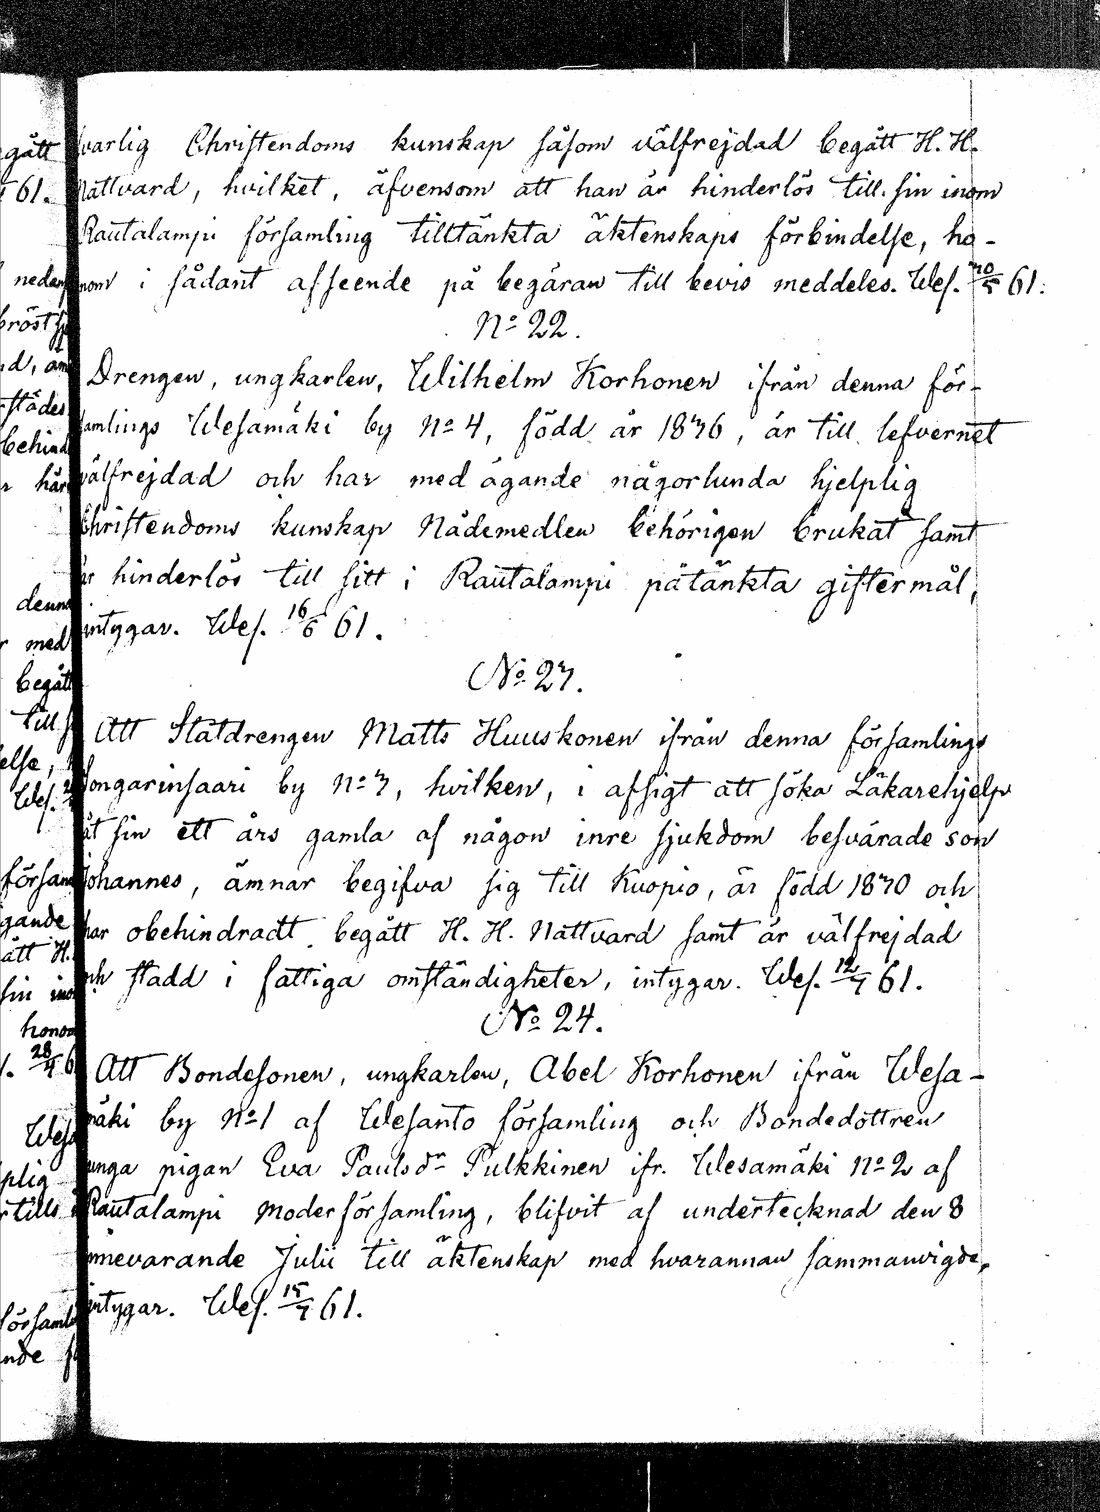 varlig Christendoms kunskap såsom välfrejdad begått H. H.
Nattvard, hvilket, äfvensom att han är hinderlös till sin inom
Rautalampi församling tilltänkta äktenskaps förbindelse, ho-
nom i sådant afseende på begäran till bevis meddeles. Wes. 30/5 61.
No 22.
Drengen, ungkarlen, Wilhelm Korhonen ifrån denna för-
samlings Wesamäki by No 4, född år 1836, är till lefvernet
välfrejdad och har med ägande någorlunda hjelplig
Christendoms kunskap Nådemedlen behörigen brukat samt
är hinderlös till sitt i Rautalampi påtänkta giftermål,
intygar. Wes. 16/6 61.
No 23.
Att Statdrengen Matts Huuskonen ifrån denna församlings
Songarinsaari by No 3, hvilken, i afsigt att söka Läkarehjelp
åt sin ett års gamla af någon inre sjukdom besvärade son
Johannes, ämnar begifva sig till Kuopio, är född 1830 och
har obehindradt begått H. H. Nattvard samt är välfrejdad
och stadd i fattiga omständigheter, intygar. Wes. 12/7 61.
No 24.
Att Bondesonen, ungkarlen, Abel Korhonen ifrån Wesa-
mäki by No 1 af Wesanto församling och Bondedottren
unga pigan Eva Paulsdr Pulkkinen ifr. Wesamäki No 2 af
Rautalampi Moderförsamling, blifvit af undertecknad den 8
innevarande Julii till äktenskap med hvarannan sammanvigde,
intygar. Wes. 15/7 61.